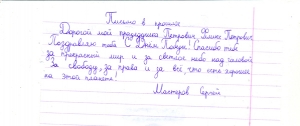 Письмо в прошлое
Дорогой мой прадедушка Петрович, Петрович.
Поздравляю тебя С Днём Победы! Спасибо тебе
за прекрасный мир и за светлое небо над головой
За свободу, за права и за всё, что есть хорошее
на этой планете!
Мастеров Сергей.